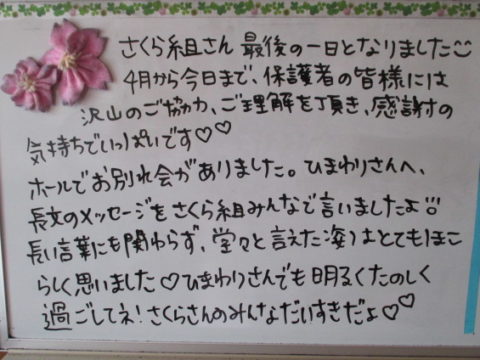 さくら組さん 最後の一日となりました
4月から今日まで、保護者の皆様には
沢山のご協力、ご理解を頂き、感謝の
気持ちでいっぱいです♡♡
ホールでお別れ会がありました。ひまわりさんへ、
長文のメッセージをさくら組みんなで言いましたよ!!
長い言葉にも関わらず、堂々と言えた姿はとてもほこ
らしく思いました♡ひまわりさんでも明るくたのしく
過ごしてネ!さくらさんのみんなだいすきだよ♡♡